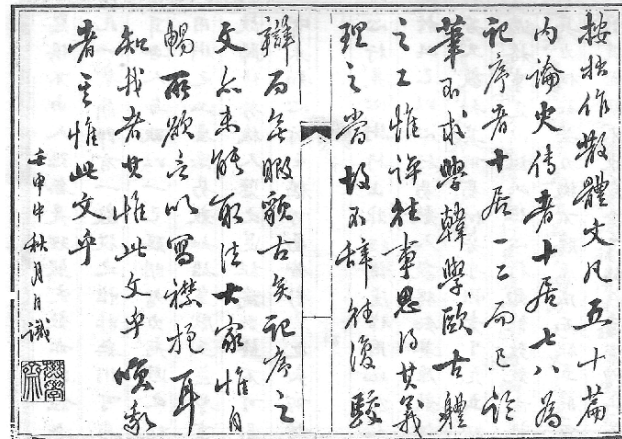 按拙作散體文凡五十篇
內論史傳者十居七八為
記序者十居一二而已詮
筆不求學韓學歐古體
之工惟評往事思得其義
理之當故不憚往復駁
辯而無暇顧古矣記序之
文亦未能取法大家惟自
暢所欲言以寫襟抱耳
知我者其惟此文乎嗤我
者其惟此文乎
壬申中秋月自識